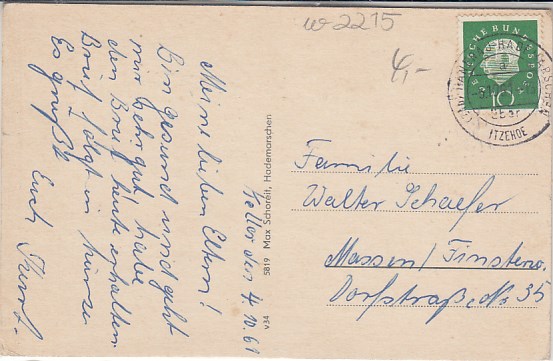 w 2215
4,-
Meine lieben Eltern!
Bin gesund und geht
mir sehr gut habe
den Brief heute erhalten.
Brief folgt in kürze
Es grüßt
Euch
den 4.10.61
5819 Max Schoreit, Hademarschen
v34
DEUTSCHE BUNDESPOST
10
über
ITZEHOE
Familie
Walter Schaefer
Massen/Finsterw.
Dorfstraße Nr 35